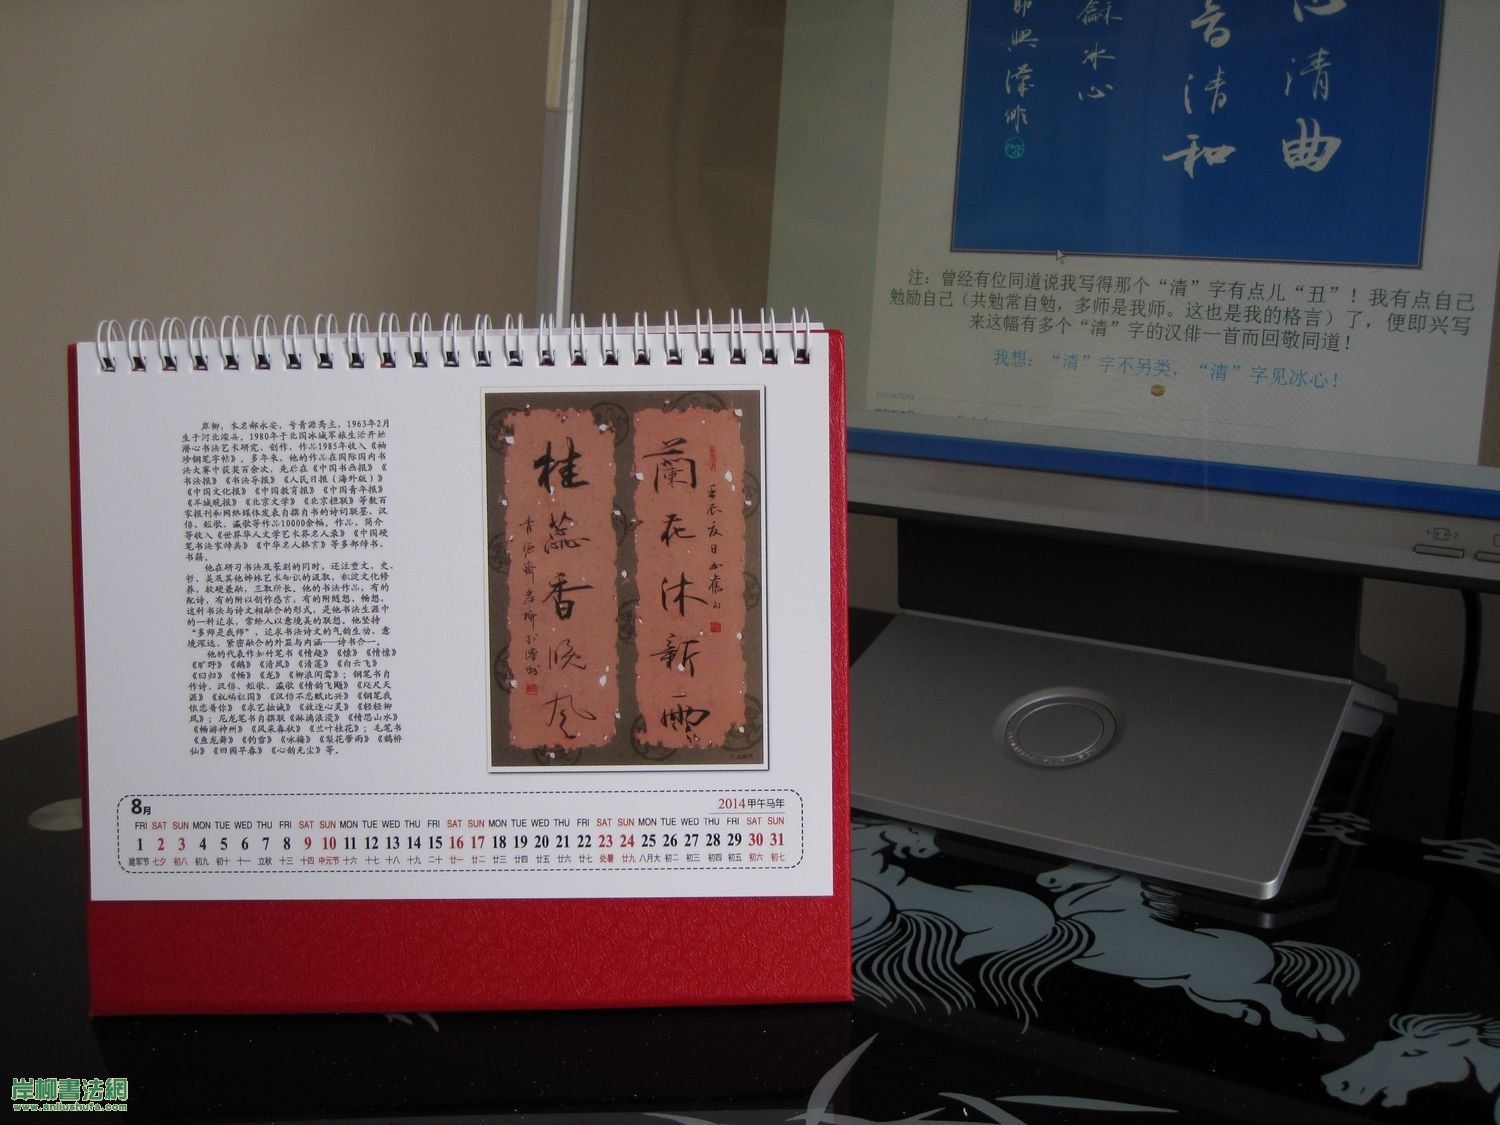 岸柳，本名郝永安，号青源斋主，1963年2月
生于河北滦县。1980年于北国冰城军旅生活开始
潜心书法艺术研究、创作，作品1985年收入《袖
珍钢笔字帖》。多年来，他的作品在国际国内书
法大赛中获奖百余次，先后在《中国书画报》《
书法报》《书法导报》《人民日报（海外版）》
《中国文化报》《中国教育报》《中国青年报》
《羊城晚报》《北京文学》《北京楹联》等数百
家报刊和网络媒体发表自撰自书的诗词联墨、汉
俳、短歌、瀛歌等作品10000余幅。作品、简介
等收入《世界华人文学艺术界名人录》《中国硬
笔书法家辞典》《中华名人格言》等多部辞书、
书籍。
他在研习书法及篆刻的同时，还注重文、史、
哲、美及其他姊妹艺术知识的汲取，积淀文化修
养，软硬兼融，三取所长。他的书法作品，有的
配诗，有的附以创作感言，有的附随想、畅想，
这种书法与诗文相融合的形式，是他书法生涯中
的一种追求，常给人以意境美的联想。他坚持
“多师是我师”，追求书法诗文的气韵生动、意
境深远、紧密融合的外显与内涵——诗书合一。
他的代表作如竹笔书《情趣》《惊》《情愫》
《旷野》《鹤》《清风》《清莲》《白云飞》
《回归》《畅》《龙》《柳浪闻莺》；钢笔书自
作诗、汉俳、短歌、瀛歌《情韵飞飏》《咫尺天
涯》《祝福祖国》《汉俳不忘赋比兴》《钢笔我
依恋着你》《求艺拙诚》《放逐心灵》《轻轻柳
风》；尼龙笔书自撰联《淋漓浪漫》《情思山水》
《畅游神州》《风采春秋》《兰叶桂花》；毛笔书
《鱼龙舞》《钓雪》《咏梅》《梨花带雨》《鹊桥
仙》《田园早春》《心韵无尘》等。
蘭花沐新雨
桂蕊香晚风
8月
2014甲午马年
FRI SAT SUN MON TUE WED THU FRI SAT SUN MON TUE WED THU FRI SAT SUN MON TUE WED THU FRI SAT SUN MON TUE WED THU FRI SAT SUN
1 2 3 4 5 6 7 8 9 10 11 12 13 14 15 16 17 18 19 20 21 22 23 24 25 26 27 28 29 30 31
建军节 七夕 初八 初九 初十 十一 立秋 十三 十四 中元节 十六 十七 十八 十九 二十 廿一 廿二 廿三 廿四 廿五 廿六 廿七 处暑 廿九 八月大 初二 初三 初四 初五 初六 初七
清曲
音清和
龢冰心
注：曾经有位同道说我写得那个“清”字有点儿“丑”！我有点自己
勉励自己（共勉常自勉，多师是我师。这也是我的格言）了，便即兴写
来这幅有多个“清”字的汉俳一首而回敬同道！
我想：“清”字不另类，“清”字见冰心！
岸柳書法網
www.anliushufa.com